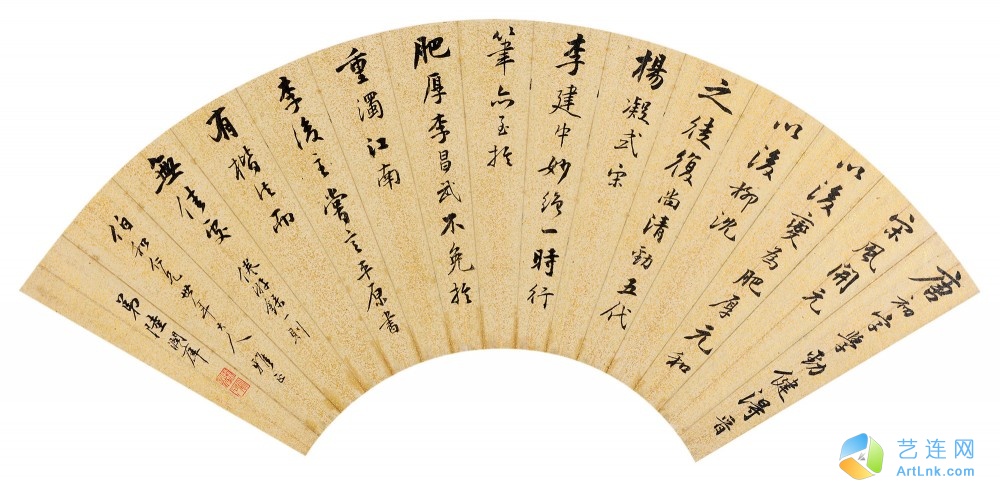 唐初字學勁健得晉
宋風開元
以後變為肥厚元和
以後柳沈
之徒復尚清勁五代
楊凝式宋
李建中妙絕一時行
筆亦至於
肥厚李昌武不免於
重濁江南
李後主嘗言平原書
有楷法而
無佳處 倦游錄一則
伯和仁兄世年大人 雅正
弟陸潤庠
艺连网
ArtLnk.com